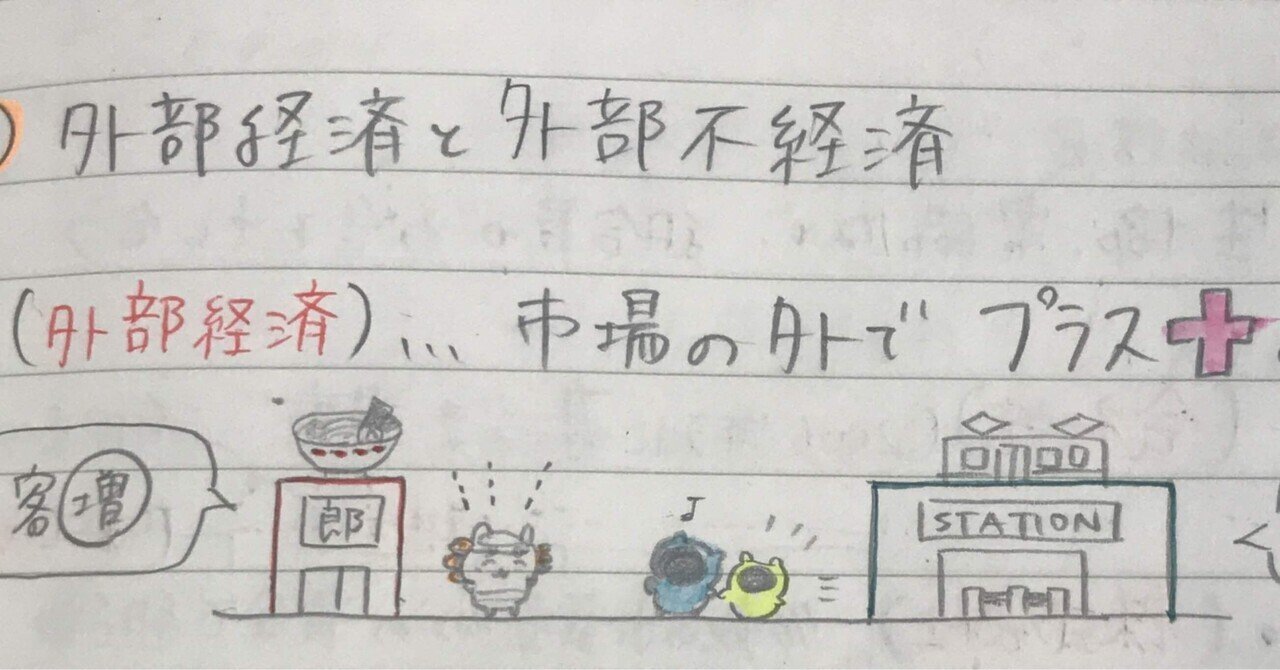 ) 外部経済と外部不経済
(外部経済)… 市場の外で プラス
客増
郎
STATION